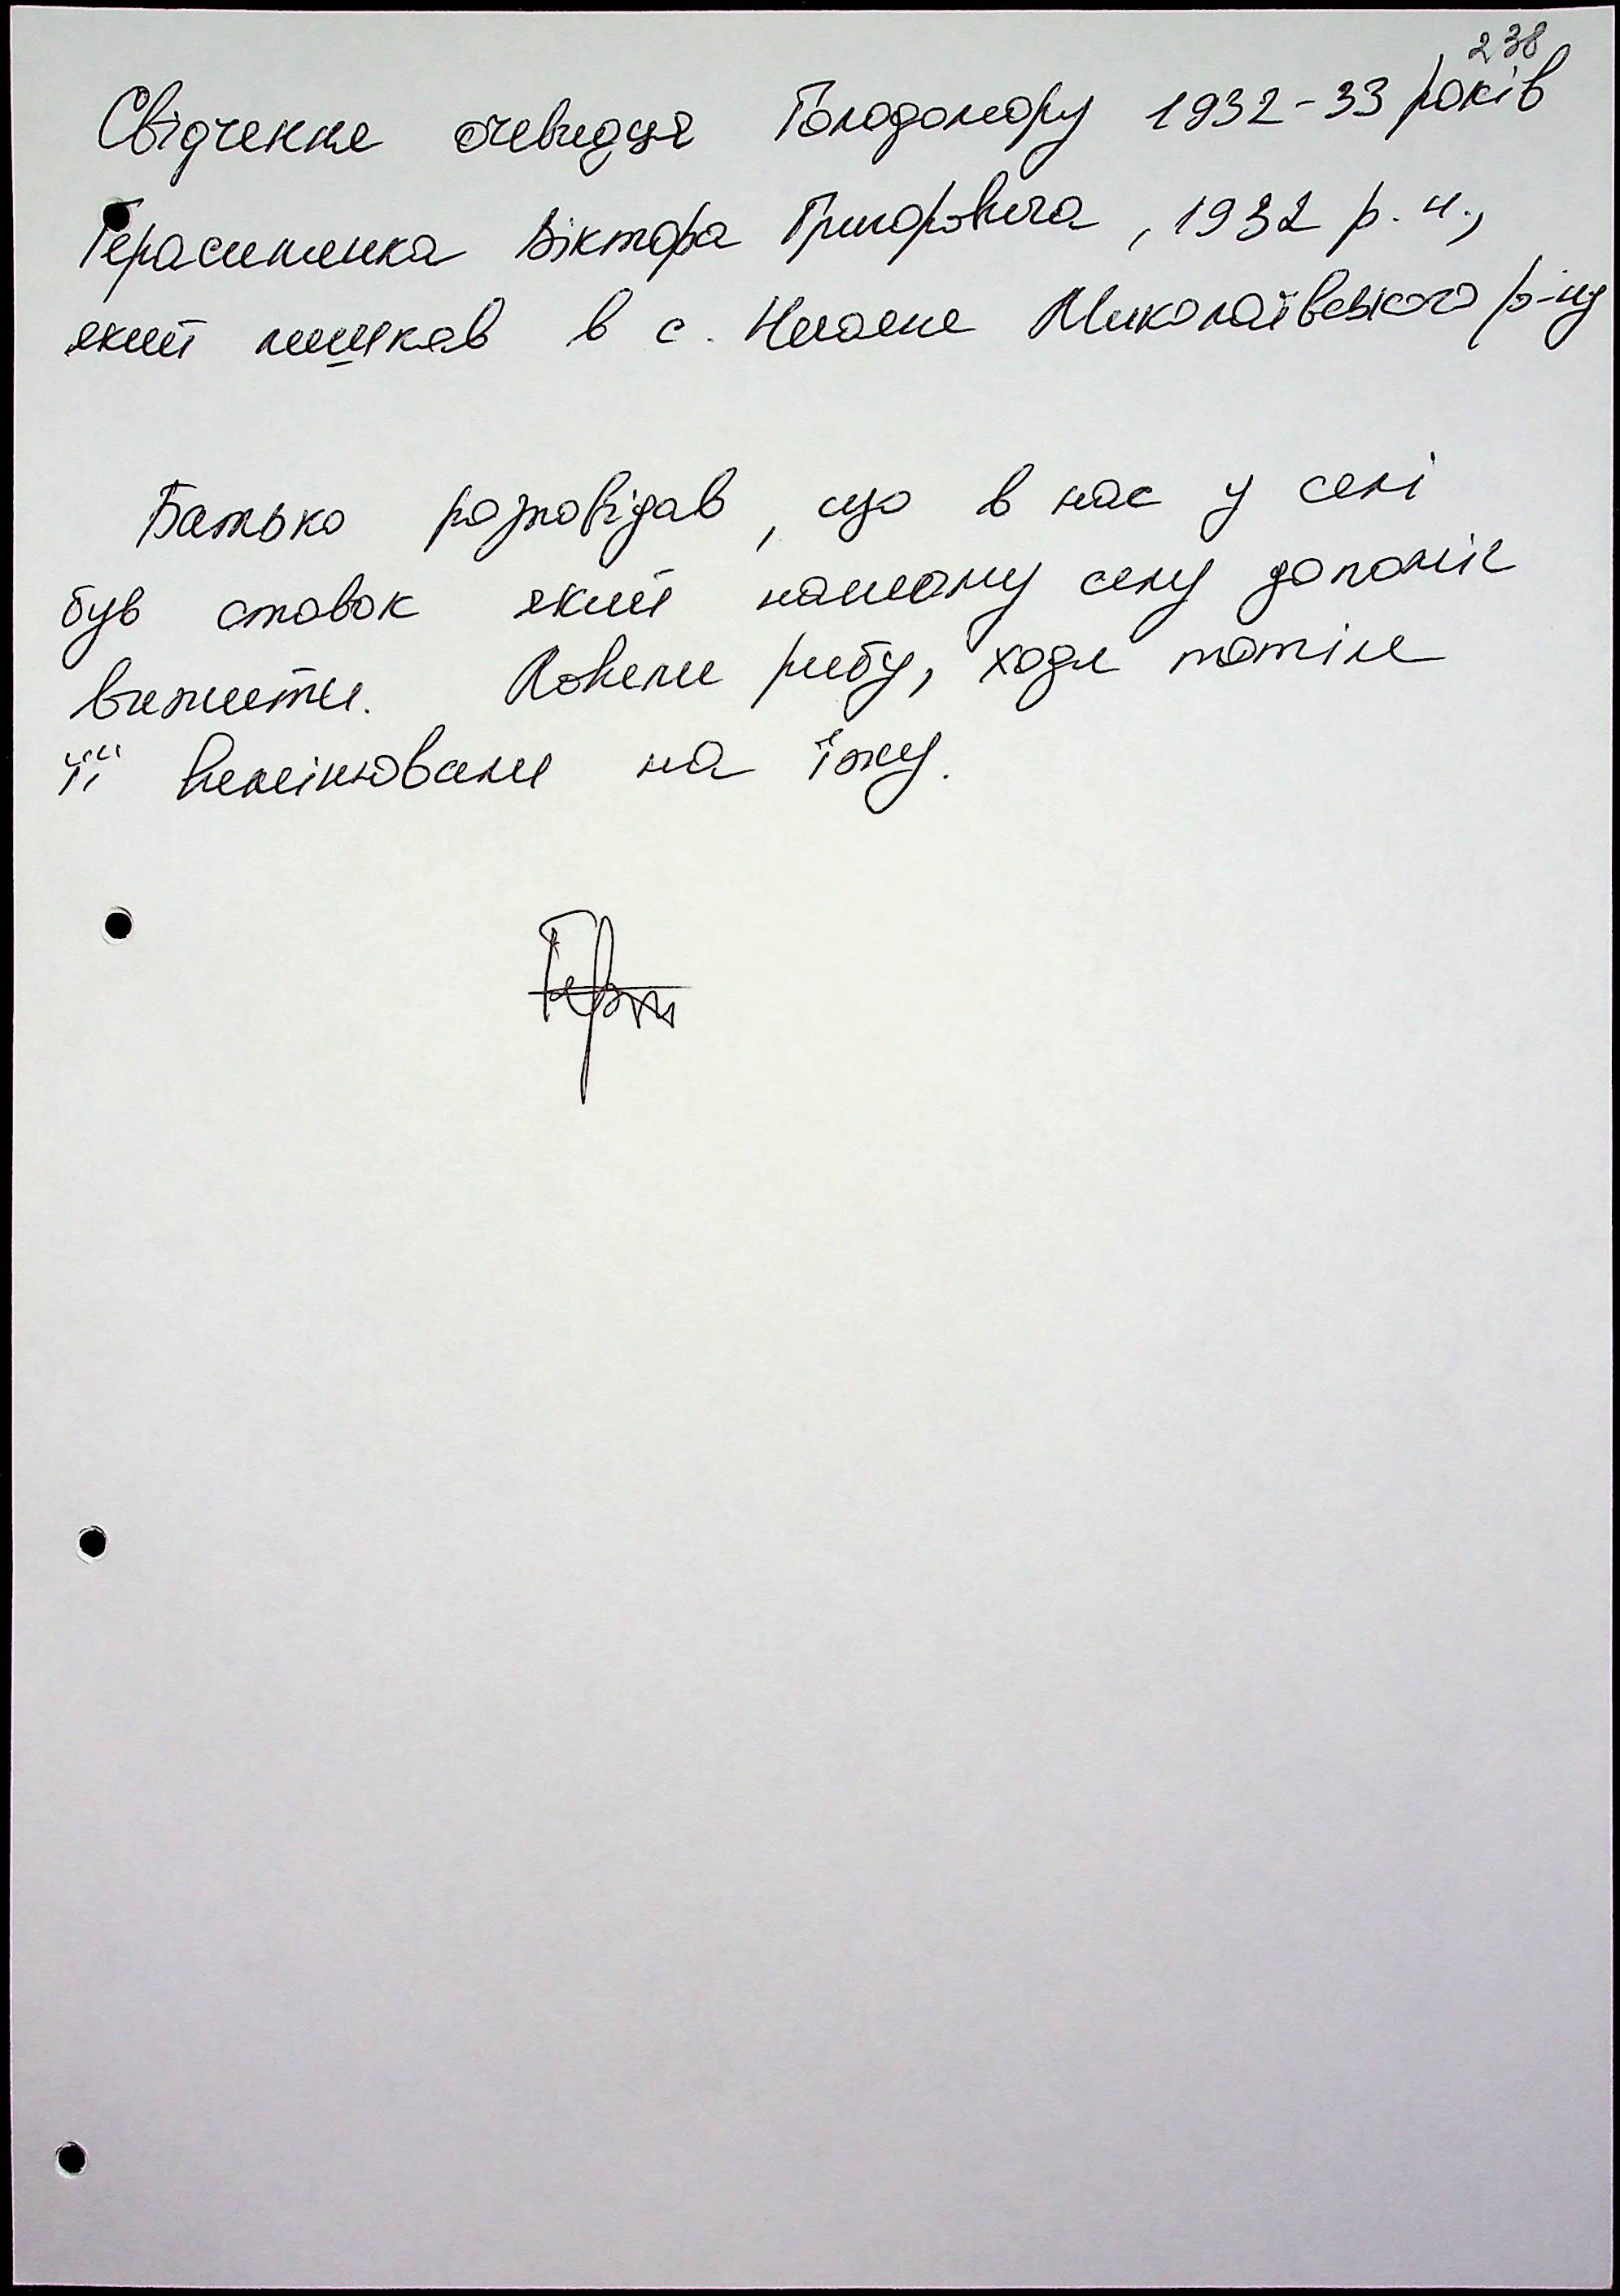 238
Свідчення очевидця Голодомору 1932-33 років
Герасименка Віктора Григоровича, 1932 р. н.,
який мешкав в с. Миколаївського р-ну
Батько розповідав, що в нас у селі
був ставок який нашому селу допоміг
вижити. Ловили рибу, а потім
її вимінювали на їжу.